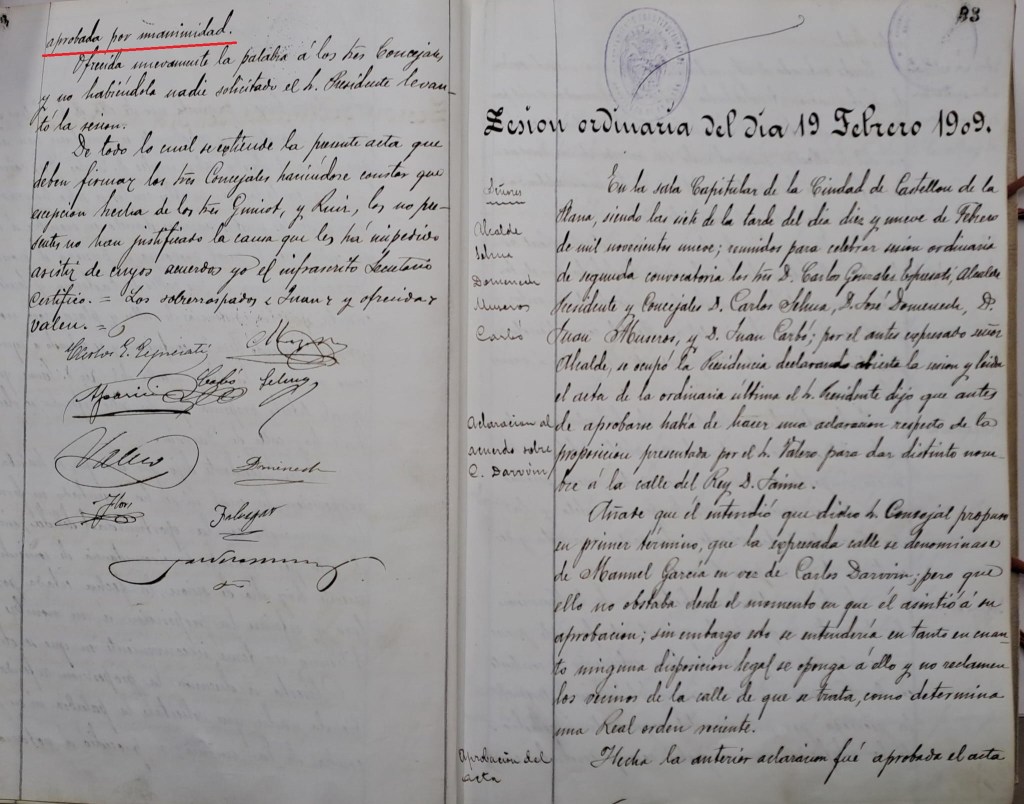 aprobada por unanimidad.
Ofrecida nuevamente la palabra á los Sres Concejales
y no habiéndola nadie solicitado el Sr. Presidente levan-
tó la sesion.
De todo lo cual se extiende la presente acta que
deben firmar los Sres Concejales haciéndose constar que
excepcion hecha de los Sres Guinot, y Ruiz, los no pre-
sentes no han justificado la causa que les há impedido
asistir de cuyos acuerdos yo el infrascrito Secretario
certifico. = Los sobrerraspados = Juan = y ofrecida =
valen. =
Carlos G. Espresati
Aparici Carbó Selma
Valero Domenech
Flors
Balaguer
83
Sesion ordinaria del dia 19 Febrero 1909.
Señores
Alcalde
Selma
Domenech
Museros
Carbó
En la sala Capitular de la Ciudad de Castellon de la
Plana, siendo las siete de la tarde del dia diez y nueve de Febrero
de mil novecientos nueve; reunidos para celebrar sesion ordinaria
de segunda convocatoria los Sres D. Carlos Gonzalez Espresati, Alcalde
Presidente y Concejales D. Carlos Selma, D. José Domenech, D.
Juan Museros, y D. Juan Carbó; por el antes expresado señor
Alcalde, se ocupó la Presidencia declarando abierta la sesion y leida
el acta de la ordinaria última el Sr. Presidente dijo que antes
de aprobarse había de hacer una aclaracion respecto de la
proposicion presentada por el Sr. Valero para dar distinto nom-
bre á la calle del Rey D. Jaime.
Aclaracion al
acuerdo sobre
C. Darvvin
Añade que él entendió que dicho Sr. Concejal propuso
en primer término, que la expresada calle se denominase
de Manuel García en vez de Carlos Darvvin; pero que
ello no obstaba desde el momento en que él asintió á su
aprobacion; sin embargo esto se entendería en tanto en cuan-
to ninguna disposicion legal se oponga á ello y no reclamen
los vecinos de la calle de que se trata, como determina
una Real orden reciente.
Aprobación del
acta
Hecha la anterior aclaracion fué aprobada el acta